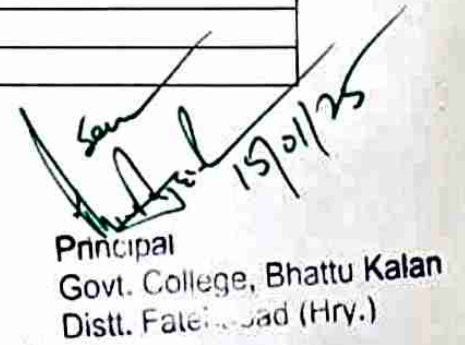 15/01/25
Principal
Govt. College, Bhattu Kalan
Distt. (Hry.)